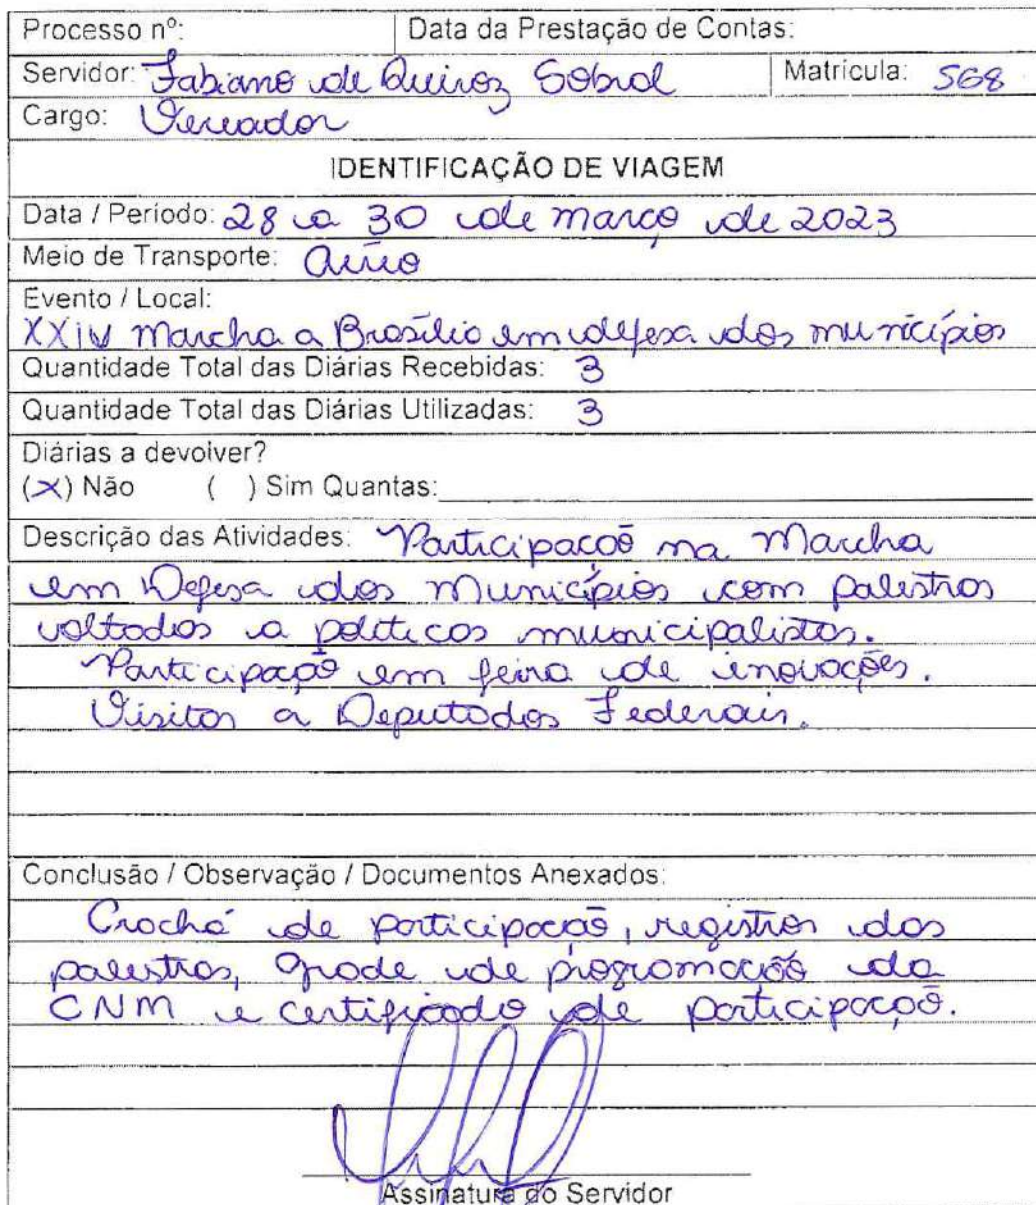 Processo nº: Data da Prestação de Contas:
Servidor: Fabiano de Queiroz Sobral Matrícula: 568
Cargo: Vereador
IDENTIFICAÇÃO DE VIAGEM
Data / Período: 28 a 30 de março de 2023
Meio de Transporte: Aéreo
Evento / Local:
XXIV Marcha a Brasília em defesa dos municípios
Quantidade Total das Diárias Recebidas: 3
Quantidade Total das Diárias Utilizadas: 3
Diárias a devolver?
(X) Não ( ) Sim Quantas:
Descrição das Atividades: Participação na Marcha
em Defesa dos Municípios com palestras
voltados a políticas municipalistas.
Participação em feira de inovações.
Visitas a Deputados Federais.
Conclusão / Observação / Documentos Anexados:
Crachá de participação, registros das
palestras, grade de programação da
CNM e certificado de participação.
Assinatura do Servidor